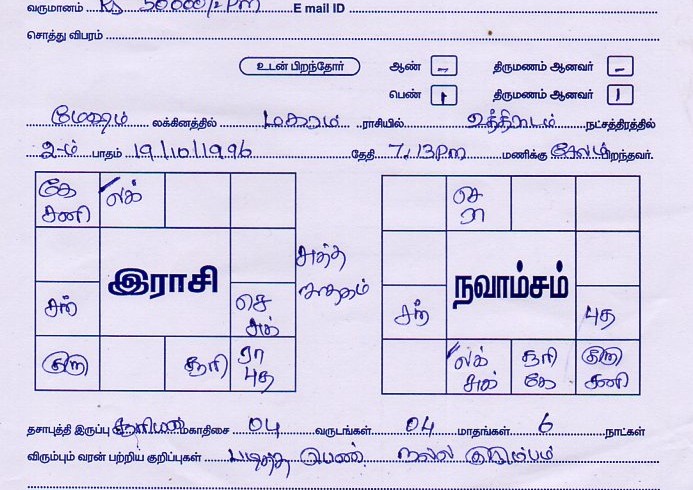 வருமானம் Rs 30000/- PM E mail ID
சொத்து விபரம்
உடன் பிறந்தோர் ஆண் - திருமணம் ஆனவர் -
பெண் 1 திருமணம் ஆனவர் 1
மேஷம் லக்கினத்தில் மகரம் ராசியில் உத்திராடம் நட்சத்திரத்தில்
2-ம் பாதம் 19/10/1996 தேதி 7.13 PM மணிக்கு சேலம் பிறந்தவர்.
கே சனி லக் செ ரா
சுத்த ஜாதகம்
இராசி நவாம்சம்
சந் செ சுக் சந் புத
குரு சூரி ரா புத லக் சுக் சூரி கே குரு சனி
தசாபுத்தி இருப்பு சூரியன் மகாதிசை 04 வருடங்கள் 04 மாதங்கள் 6 நாட்கள்
விரும்பும் வரன் பற்றிய குறிப்புகள் படித்த பெண் நல்ல குடும்பம்